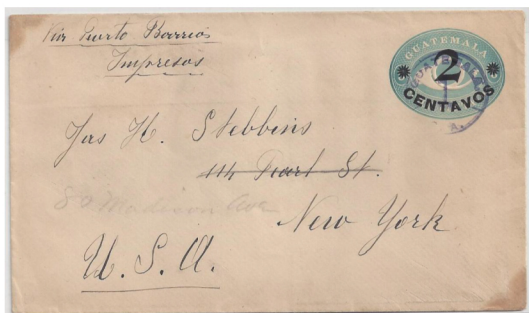 Via Puerto Barrios
Impresos
GUATEMALA
2
CENTAVOS
GUATEMALA
Jas H. Stebbins
114 Pearl St.
80 Madison Ave
New York
U. S. A.